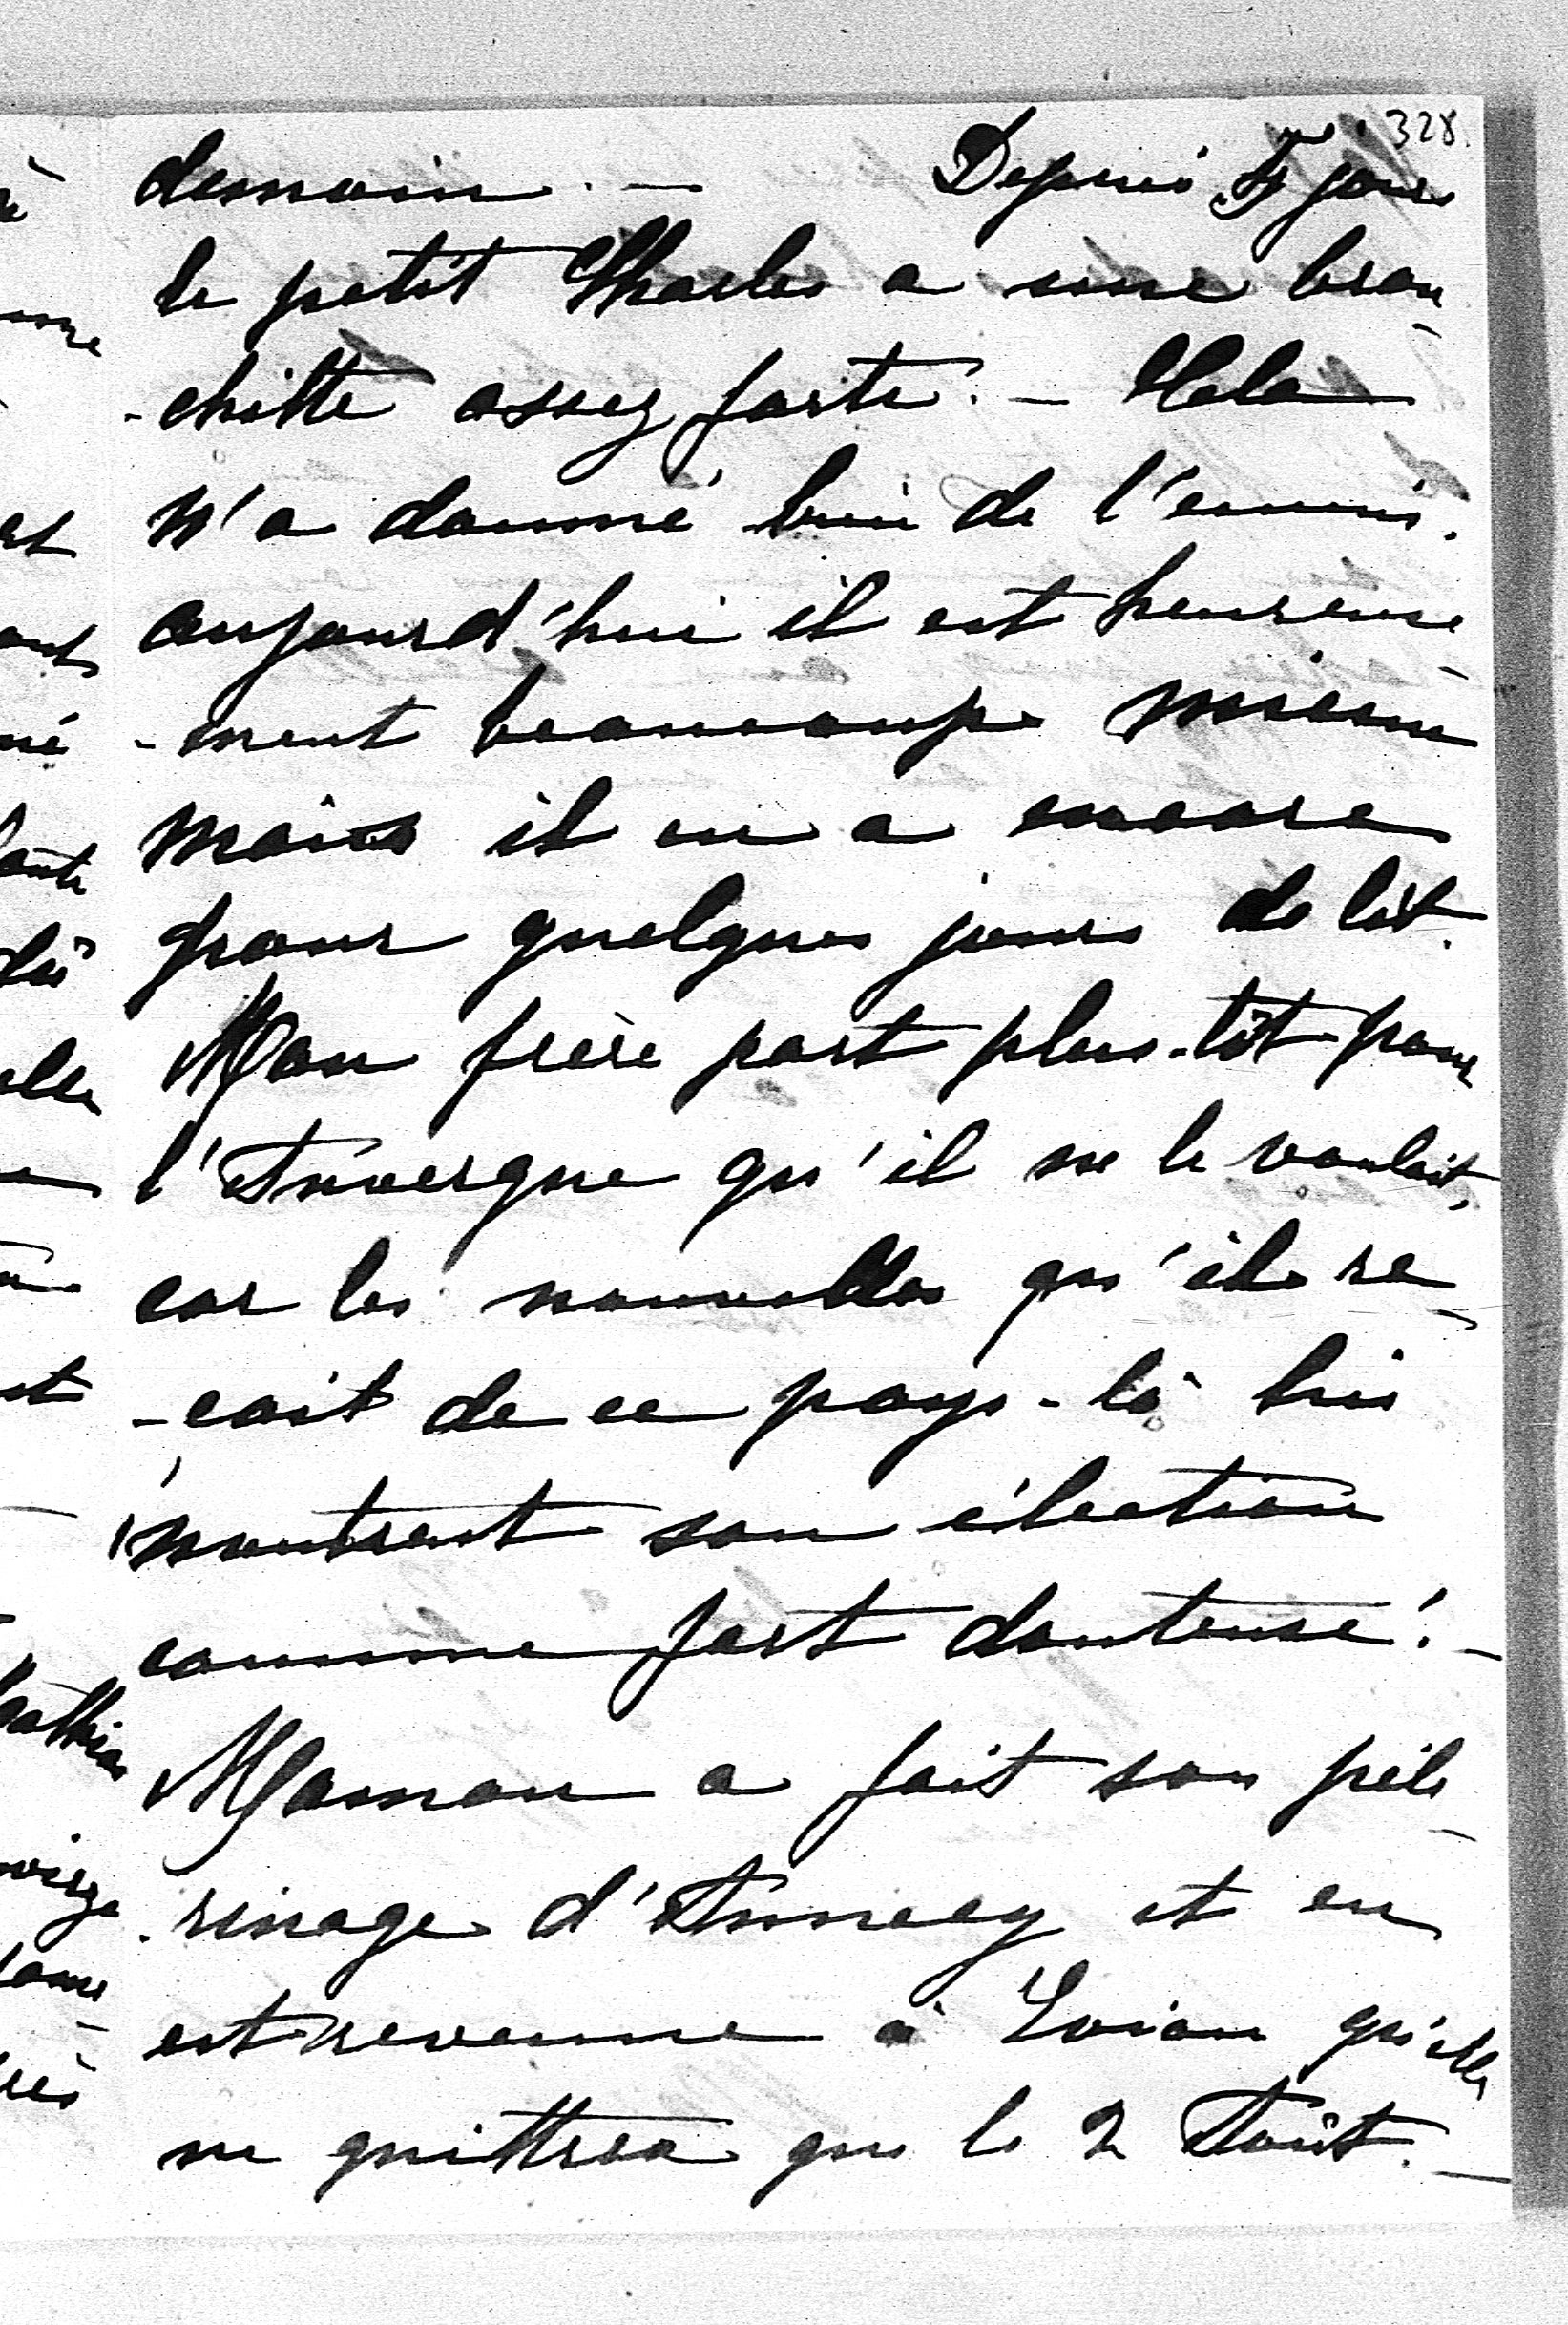 328.
demain. — Depuis 4 jours
le petit Charles a une bron
-chitte assez forte. — Cela
m'a donné bien de l'ennui.
aujourd'hui il est heureuse
-ment beaucoup mieux
mais il en a encore
pour quelques jours de lit.
Mon frère part plus-tôt pour
l'Auvergne qu'il ne le voulait,
car les nouvelles qu'il re
-çoit de ce pays-là lui
montrent son élection
comme fort douteuse! —
Maman a fait son péle
-rinage d'Annecy et en
est revenue à Evian qu'elle
ne quittera que le 2 Août. —